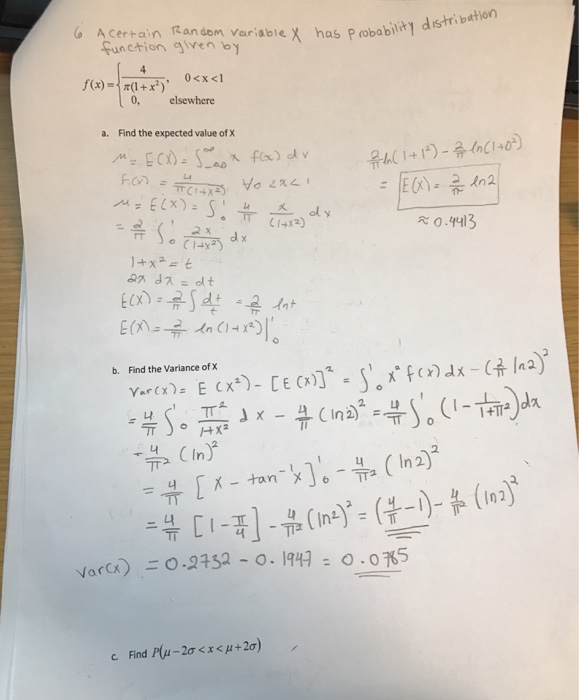 6 A certain Random variable X has probability distribution
function given by
f(x) = { 4/(π(1+x²)), 0<x<1
0, elsewhere
a. Find the expected value of X
μ = E(X) = ∫_{-∞}^{∞} x f(x) dv
F(x) = 4/(π(1+x²)) ∀ 0<x<1
μ = E(X) = ∫₀¹ 4/π x/(1+x²) dx
= 2/π ∫₀¹ 2x/(1+x²) dx
1+x² = t
2x dx = dt
E(X) = 2/π ∫ dt/t = 2/π lnt
E(X) = 2/π ln(1+x²)|₀¹
2/π ln(1+1²) - 2/π ln(1+0²)
= E(X) = 2/π ln2
≈ 0.4413
b. Find the Variance of X
Var(x) = E(x²) - [E(X)]² = ∫₀¹ x² f(x) dx - (2/π ln2)²
= 4/π ∫₀¹ π²/(1+x²) dx - 4/π (ln2)² = 4/π ∫₀¹ (1 - 1/(1+π²)) dx
- 4/π² (ln)²
= 4/π [x - tan⁻¹x]₀¹ - 4/π² (ln2)²
= 4/π [1 - π/4] - 4/π² (ln2)² = (4/π - 1) - 4/π² (ln2)²
Var(x) = 0.2732 - 0.1947 = 0.0785
c. Find P(μ-2σ<x<μ+2σ)